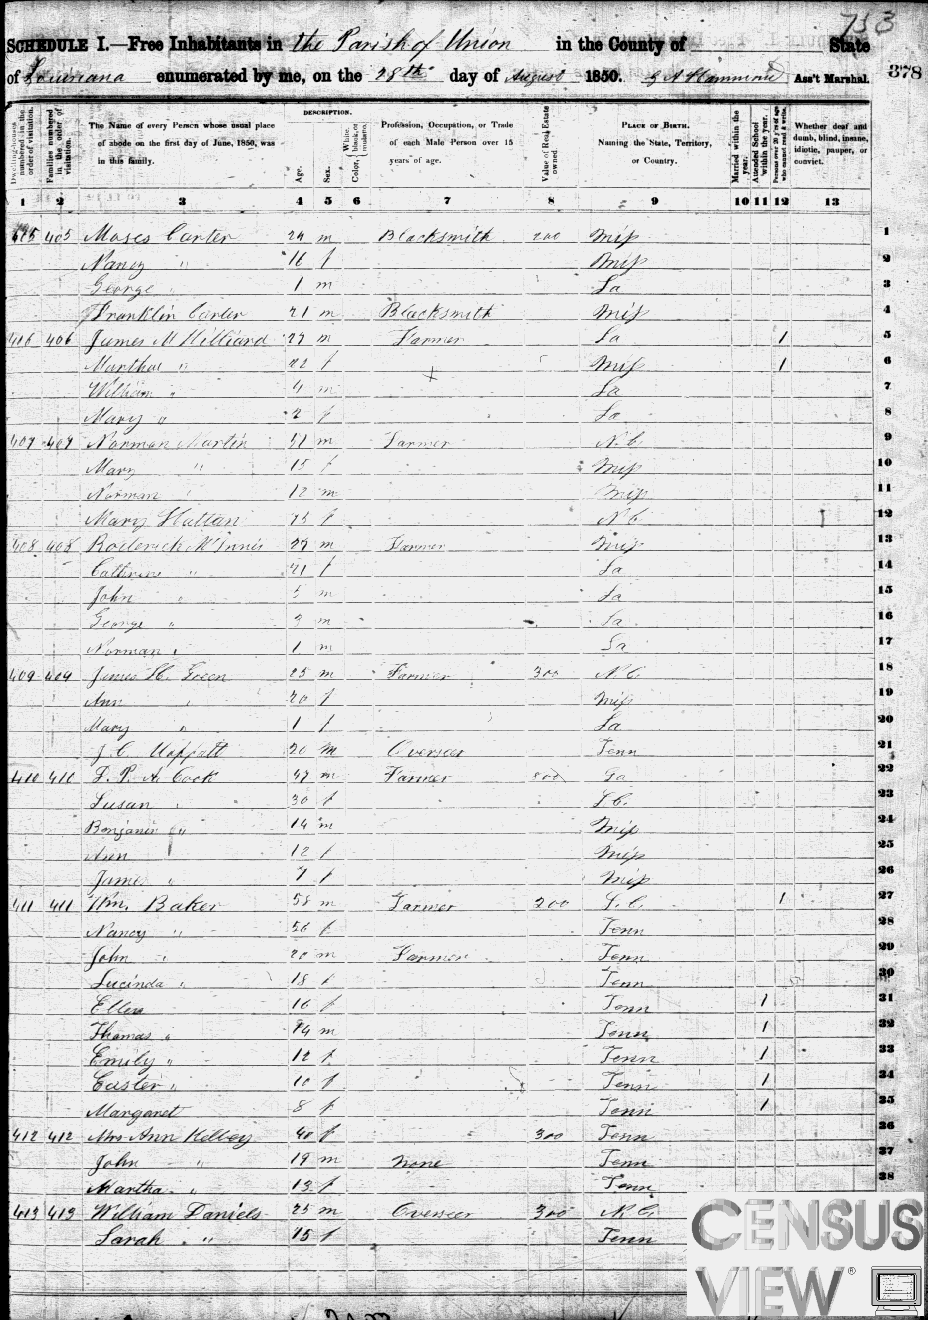 753
SCHEDULE I.—Free Inhabitants in the Parish of Union in the County of State
of Louisiana enumerated by me, on the 28th day of August 1850. Ass't Marshal.
378
DESCRIPTION.
Dwelling-houses numbered in the order of visitation.
Families numbered in the order of visitation.
The Name of every Person whose usual place of abode on the first day of June, 1850, was in this family.
Age.
Sex.
Color, White, black, or mulatto.
Profession, Occupation, or Trade of each Male Person over 15 years of age.
Value of Real Estate owned.
PLACE OF BIRTH. Naming the State, Territory, or Country.
Married within the year.
Attended School within the year.
Persons over 20 y'rs of age who cannot read & write.
Whether deaf and dumb, blind, insane, idiotic, pauper, or convict.
1 2 3 4 5 6 7 8 9 10 11 12 13
405 405 Moses Carter 24 m Blacksmith 200 Miss 1
Nancy " 16 f Miss 2
George " 1 m La 3
Franklin Carter 21 m Blacksmith Miss 4
406 406 James M Hilliard 27 m Farmer La 1 5
Martha " 22 f Miss 1 6
William " 4 m La 7
Mary " 2 f La 8
407 407 Norman Martin 51 m Farmer N.C. 9
Mary " 15 f Miss 10
Norman " 12 m Miss 11
Mary Hattan 75 f N C 12
408 408 Roderick McInnis 27 m Farmer Miss 13
Cathrine " 21 f La 14
John " 5 m La 15
George " 3 m La 16
Norman " 1 m La 17
409 409 James H. Green 25 m Farmer 300 N.C. 18
Ann " 20 f Miss 19
Mary " 1 f La 20
J. C. 20 m Overseer Tenn 21
410 410 L. P. A. Cook 47 m Farmer 800 Ga 22
Susan " 30 f S.C. 23
Benjamin " 14 m Miss 24
Ann " 12 f Miss 25
James " 7 f Miss 26
411 411 Wm. Baker 58 m Farmer 200 S.C. 1 27
Nancy " 56 f Tenn 28
John " 20 m Farmer Tenn 29
Lucinda " 18 f Tenn 30
Ellen 16 f Tenn 1 31
Thomas " 14 m Tenn 1 32
Emily " 12 f Tenn 1 33
Easter " 10 f Tenn 1 34
Margaret 8 f Tenn 1 35
412 412 Mrs Ann Kelley 40 f 300 Tenn 36
John " 19 m None Tenn 37
Martha " 13 f Tenn 38
413 413 William Daniels 25 m Overseer 300 N.C.
Sarah " 15 f Tenn
CENSUS
VIEW®